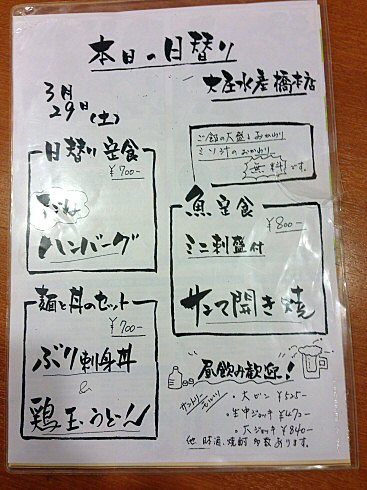 本日の日替り
3月
29日(土)
大庄水産 橋本店
ご飯の大盛とおかわり
ミソ汁のおかわり
無料です。
日替り定食
¥700-
ハンバーグ
魚定食
¥800-
ミニ刺盛付
サンマ開き焼
麺と丼のセット
¥700-
ぶり刺身丼
&
鶏玉うどん
昼飲み歓迎!
サントリー
モルツ
・大ビン ¥525-
・生中ジョッキ ¥472-
・大ジョッキ ¥840-
他 日本酒、焼酎 多数あります。